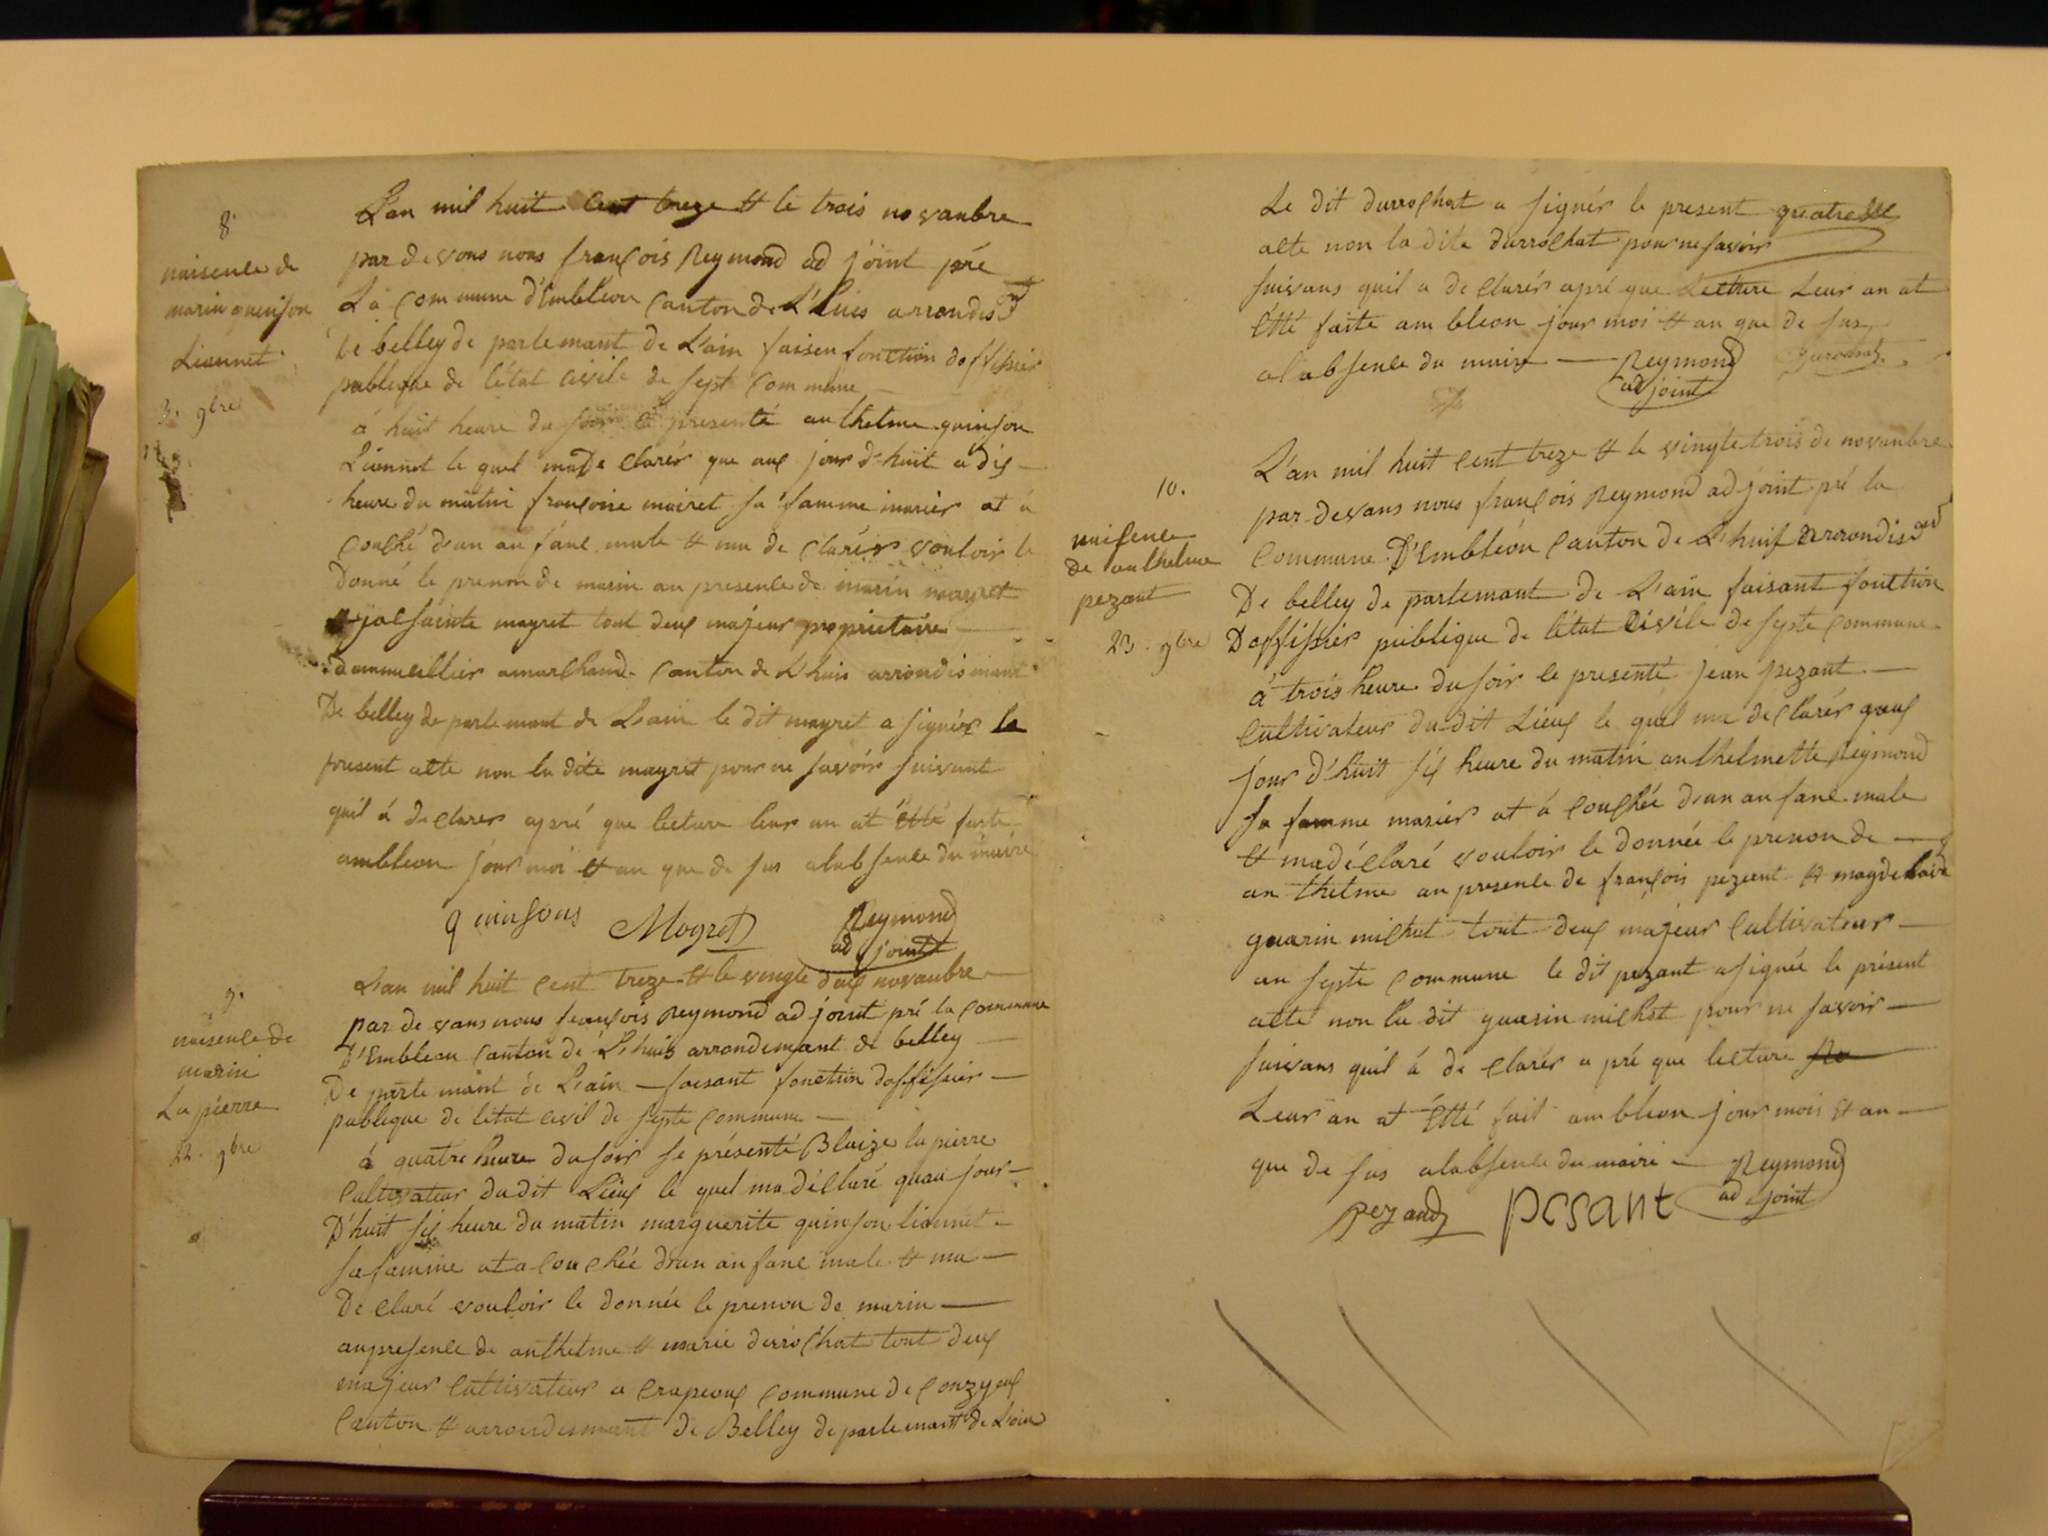 8.
naisence de
marin quinson
Liennet
3. 9bre
L'an mil huit Cent treze & le trois novanbre
par devons nous françois Reymond ad joint pré
La Commune d'Embleon Canton de L'huis arrondismt
De belley departemant de L'ain faisen fonttion doffisier
publique de létat Civile de syst Commune
á huit heure du soir ce presenté anthelme quinson
Liennet le quel made Clarér que auj jour d'huit á dis
heure du matin françoise mairet sa famme marier at á
Couché d'un anfane male & ma de Clarér vouloir le
Donné le prenon de marin an presence de marin mayret
& joesainte mayret tout deuj majeur proprietaire
amarchand Canton de L'huis arrondismant
De belley departemant de L'ain le dit mayret a signér le
present alte non la dite mayret pour ne savoir suivant
quil á de Clarer apré que lecture leur an at été faite
ambleon jour moi & an que de sus alabsence du maire
quinsons Mayret Reymond
ad joint
9.
naisence de
marin
La pierre
22. 9bre
L'an mil huit Cent treze & le vingte deuj novanbre
par de vans nous françois Reymond ad joint pré la Commune
D'Embleon Canton de L'huis arrondemant de belley
De partemant de L'ain faisant fonction doffisier
publique de létat Civil de syste Commune
á quatre heure du soir se présenté Blaize la pierre
Cultivateur dudit Lieuj le quel ma déClaré quau jour
D'huit sij heure du matin marguerite quinson liennet
sa famme at a CouChée d'un anfane male & ma
De Claré vouloir le donnée le prenon de marin
anpresence de anthelme & marie durroChat tout deuj
majeur Cultivateur a Crapeouj Commune de Conzyeuj
Canton & arrondismant de Belley departemant de L'ain
Le dit durroChat a signér le present
alte non la dite durroChat pour ne savoir
suivans quil a de Clarér apré que Lecture Leur an at
été faite ambleon jour moi & an que de sus
alabsence du maire Reymond
ad joint
durochat
10.
naisence
de anthelme
pezant
23. 9bre
L'an mil huit Cent treze & le vingte trois de novanbre
par devans nous françois Reymond ad joint pré la
Commune D'Embléon Canton de L'huis arrondis
De belley de partemant de L'ain faisant fonttion
Doffisiér publique de létat Civile de syste Commune
á trois heure du soir ce presenté jean pezant
Cultivateur dudit Lieuj le quel ma de Clarér quauj
jour d'huit sij heure du matin anthelmette Reymond
sa famme marier at á CouChée d'un anfane male
& madéClaré vouloir le donnée le prenon de
an thelme an presence de françois pezant & magdelaine
guarin miChat tout deuj majeur Cultivateur
an syste Commune le dit pezant a signée le présent
alte non la dit guarin miChat pour ne savoir
suivans quil á de Clarér a pré que lecture
Leur an at été fait ambleon jour mois & an
que de sus alabsence du maire Reymond
ad joint
pezand pesant